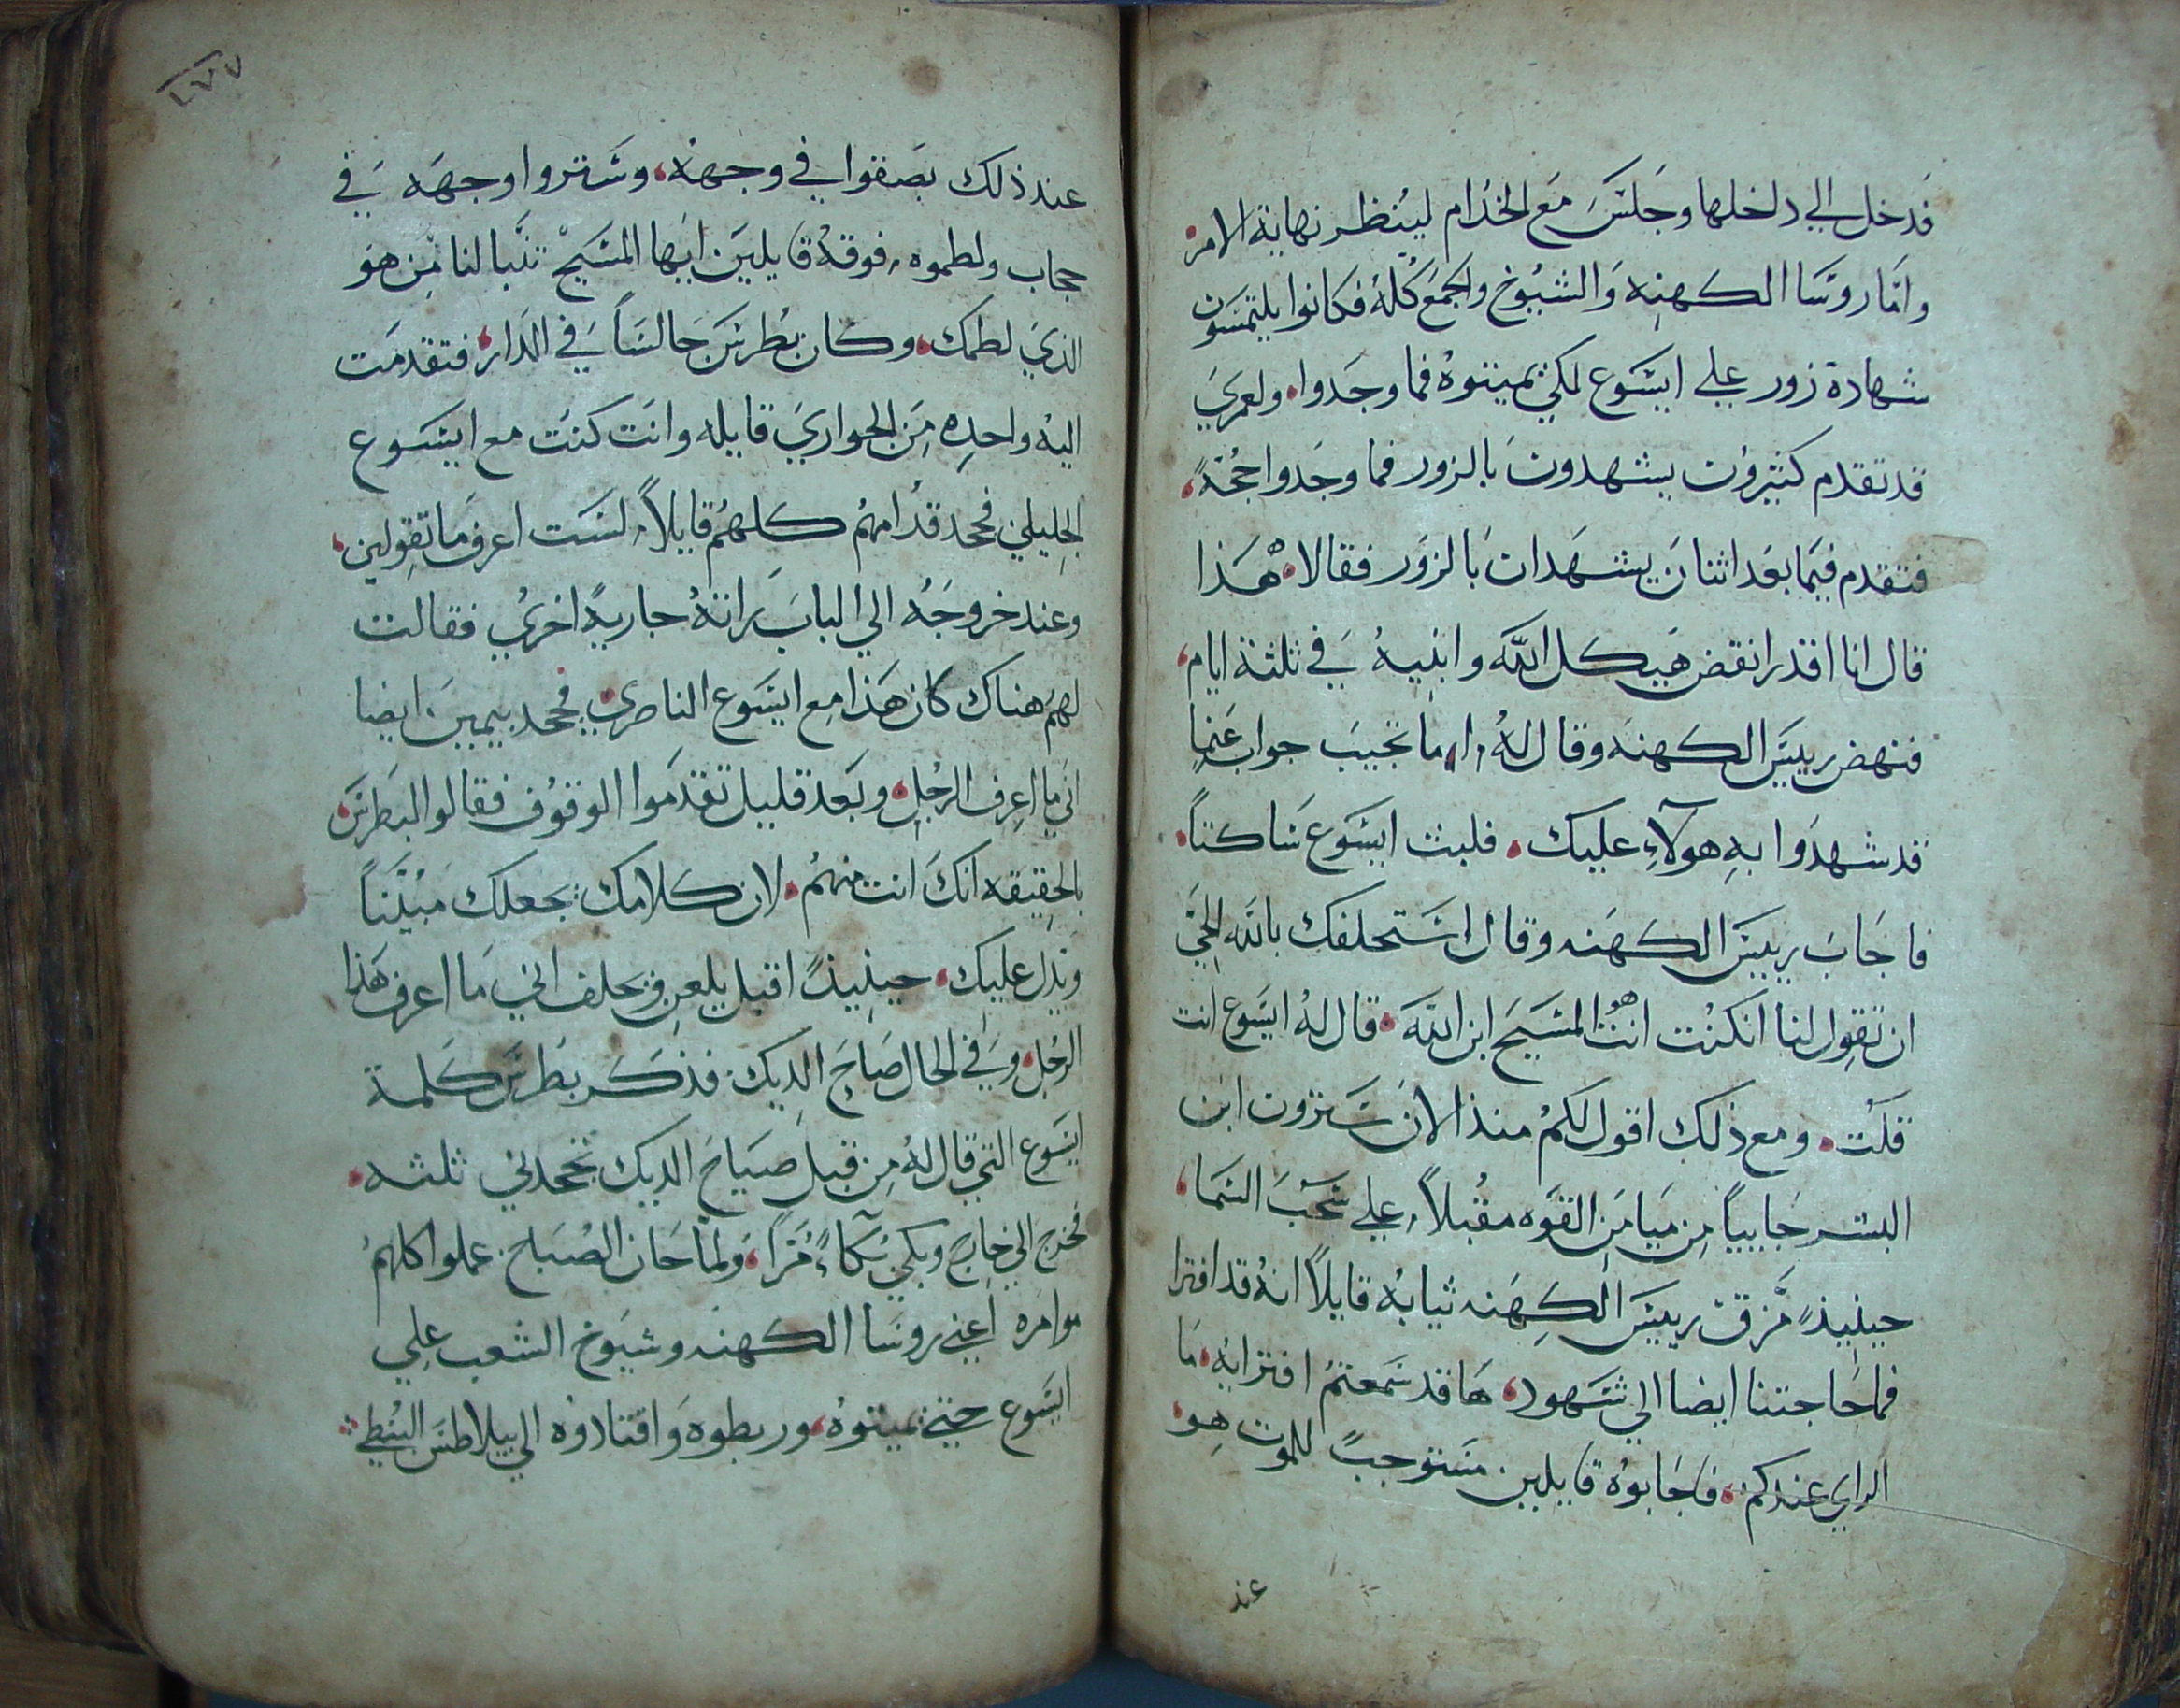 فدخل الي داخلها وجلس مع الخدام لينظر نهاية الامر
واما روسا الكهنه والشيوخ والجمع كله فكانوا يلتمسون
شهادة زور علي ايسوع لكي يميتوه فما وجدوا ولعمري
قد تقدم كثيرون يشهدون بالزور فما وجدوا حجة
فتقدم فيما بعد اثنان يشهدان بالزور فقالا هذا
قال انا اقدر انقض هيكل الله وابنيه في ثلثة ايام
فنهض رييس الكهنه وقال له اما تجيب جواب عنما
قد شهدوا به هولاء عليك فلبث ايسوع ساكتاً
فاجاب رييس الكهنه وقال استحلفك بالله الحي
ان تقول لنا انكنت انت هو المسيح ابن الله قال له ايسوع انت
قلت ومع ذلك اقول لكم منذ الان سترون ابن
البشر جايياً من ميامن القوه مقبلاً علي سحب السما
حينيذٍ مزق رييس الكهنه ثيابه قايلاً انه قد افترا
فما حاجتنا ايضا الي شهود ها قد سمعتم افترايه ما
الراي عندكم فاجابوه قايلين مستوجب للموت هو
عند
٢٧٧
عند ذلك بصقوا في وجهه وستروا وجهه في
حجاب ولطموه فوقه قايلين ايها المسيح تنبا لنا من هو
الذي لطمك وكان بطرس جالساً في الدار فتقدمت
اليه واحده من الجواري قايله وانت كنت مع ايسوع
الجليلي فجحد قدامهم كلهم قايلاً لست اعرف ما تقولين
وعند خروجه الي الباب راته جارية اخري فقالت
لهم هناك كان هذا مع ايسوع الناصري فجحد بيمين ايضا
اني ما اعرف الرجل وبعد قليل تقدموا الوقوف فقالوا لبطرس
بالحقيقه انك انت منهم لان كلامك يجعلك مبيناً
ويدل عليك حينيذٍ اقبل يلعن ويحلف اني ما اعرف هذا
الرجل وفي الحال صاح الديك فذكر بطرس كلمة
ايسوع التي قال له من قبل صياح الديك تجحدني ثلثه
فخرج الي خارج وبكي بكاءً مراً ولما حان الصباح عملوا كلهم
موامره اعني روسا الكهنه وشيوخ الشعب علي
ايسوع حتي يميتوه وربطوه واقتادوه الي بيلاطس النبطي